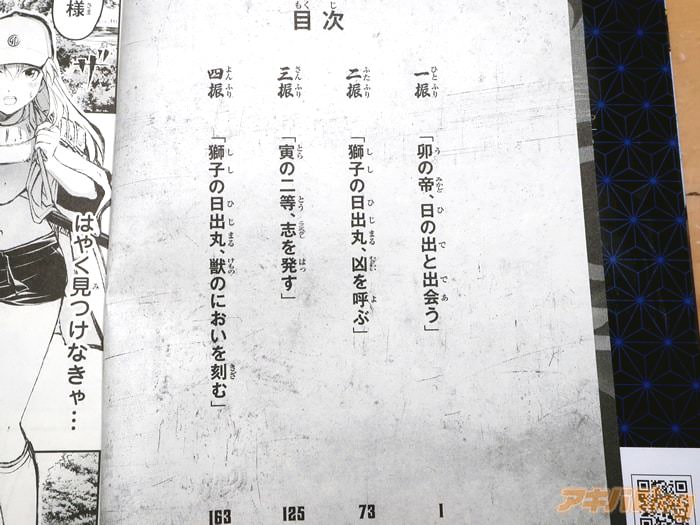 目次
一振
「卯の帝、日の出と出会う」
1
二振
「獅子の日出丸、凶を呼ぶ」
73
三振
「寅の二等、志を発す」
125
四振
「獅子の日出丸、獣のにおいを刻む」
163
様
はやく見つけなきゃ…
アキバBlog